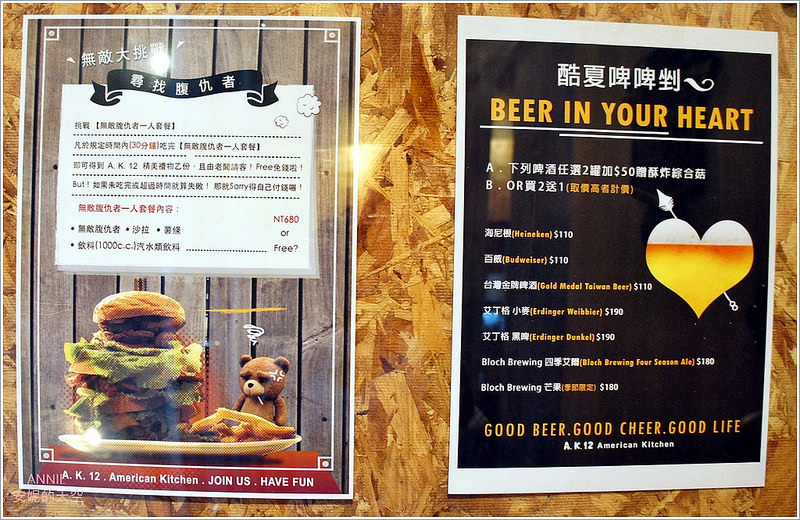 無敵大挑戰
尋找腹仇者
挑戰【無敵腹仇者一人套餐】
凡於規定時間內(30分鐘)吃完【無敵腹仇者一人套餐】
即可得到 A. K. 12 精美禮物乙份，且由老闆請客！Free免錢啦！
But！如果未吃完或超過時間就算失敗！ 那就Sorry得自己付錢囉！
無敵腹仇者一人套餐內容：
• 無敵腹仇者 • 沙拉 • 薯條
• 飲料(1000c.c.)汽水類飲料
NT680
or
Free?
A. K. 12 . American Kitchen . JOIN US . HAVE FUN
ANNIE
安妮的天空
酷夏啤啤剉
BEER IN YOUR HEART
A . 下列啤酒任選2罐加$50贈酥炸綜合菇
B . OR買2送1(取價高者計價)
海尼根(Heineken) $110
百威(Budweiser) $110
台灣金牌啤酒(Gold Medal Taiwan Beer) $110
艾丁格 小麥(Erdinger Weibbier) $190
艾丁格 黑啤(Erdinger Dunkel) $190
Bloch Brewing 四季艾爾(Bloch Brewing Four Season Ale) $180
Bloch Brewing 芒果(季節限定) $180
GOOD BEER.GOOD CHEER.GOOD LIFE
A.K.12 American Kitchen